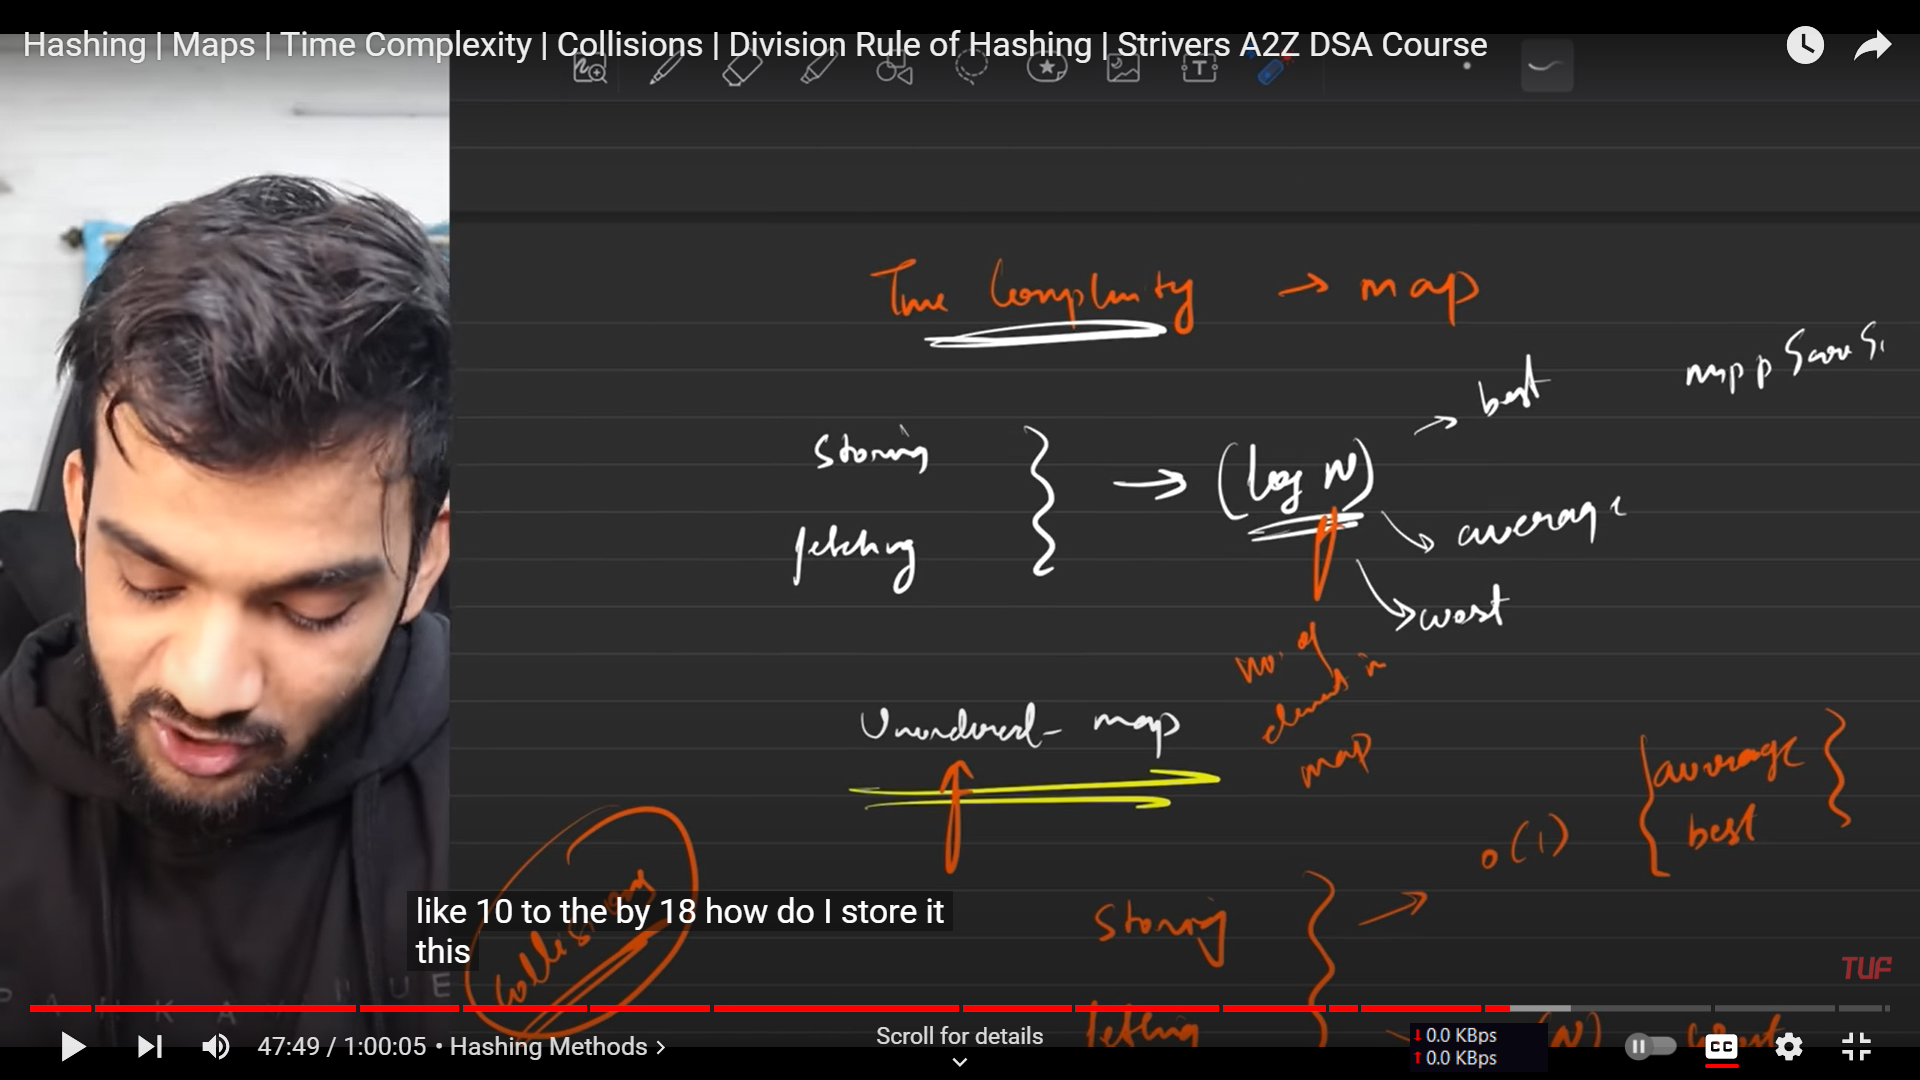 Hashing | Maps | Time Complexity | Collisions | Division Rule of Hashing | Strivers A2Z DSA Course
Time Complexity → map
best
storing
fetching
→ (log N)
average
worst
no. of
elements in
map
Unordered- map
average
best
O(1)
collisions
storing
fetching
like 10 to the by 18 how do I store it
this
TUF
47:49 / 1:00:05 • Hashing Methods >
Scroll for details
0.0 KBps
0.0 KBps
CC